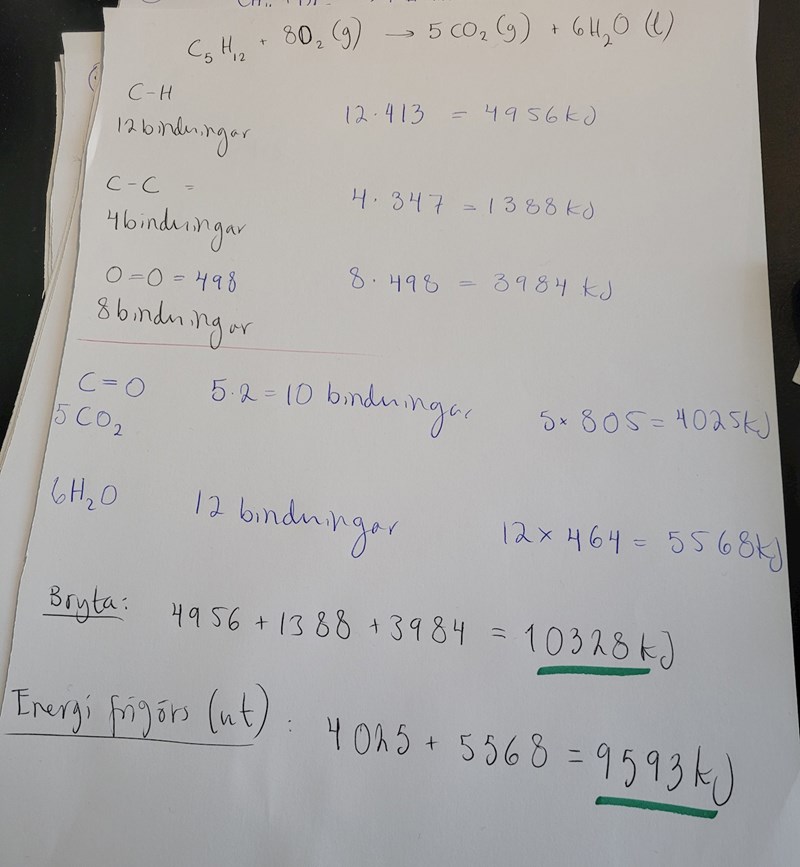 C5H12 + 8O2 (g) → 5CO2 (g) + 6H2O (l)
C-H
12 bindningar 12·413 = 4956kJ
C-C =
4 bindningar 4·347 = 1388kJ
O=O = 498 8·498 = 3984 kJ
8 bindningar
C=O 5·2=10 bindningar 5×805=4025kJ
5CO2
6H2O 12 bindningar 12×464= 5568kJ
Bryta: 4956+1388+3984 = 10328kJ
Energi frigörs (ut): 4025 + 5568 = 9593kJ